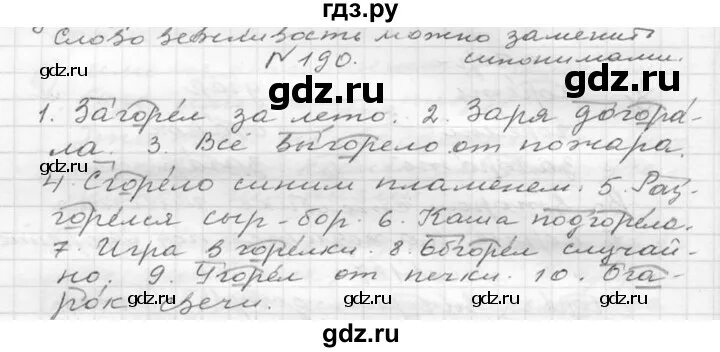 гдз.ру
слово вежливость можно заменить
N 190. синонимами.
gdz.ru gdz.ru
1. Загорел за лето. 2. Заря догора-
ла. 3. Всё выгорело от пожара.
gdz.ru gdz.ru
4. Сгорело синим пламенем. 5. Раз-
горелся сыр-бор. 6. Каша подгорела.
gdz.ru gdz.ru
7. Игра в горелки. 8. Обгорел случай-
но. 9. Угорел от печки. 10. Ога-
gdz.ru gdz.ru
рок свечи.
gdz.ru